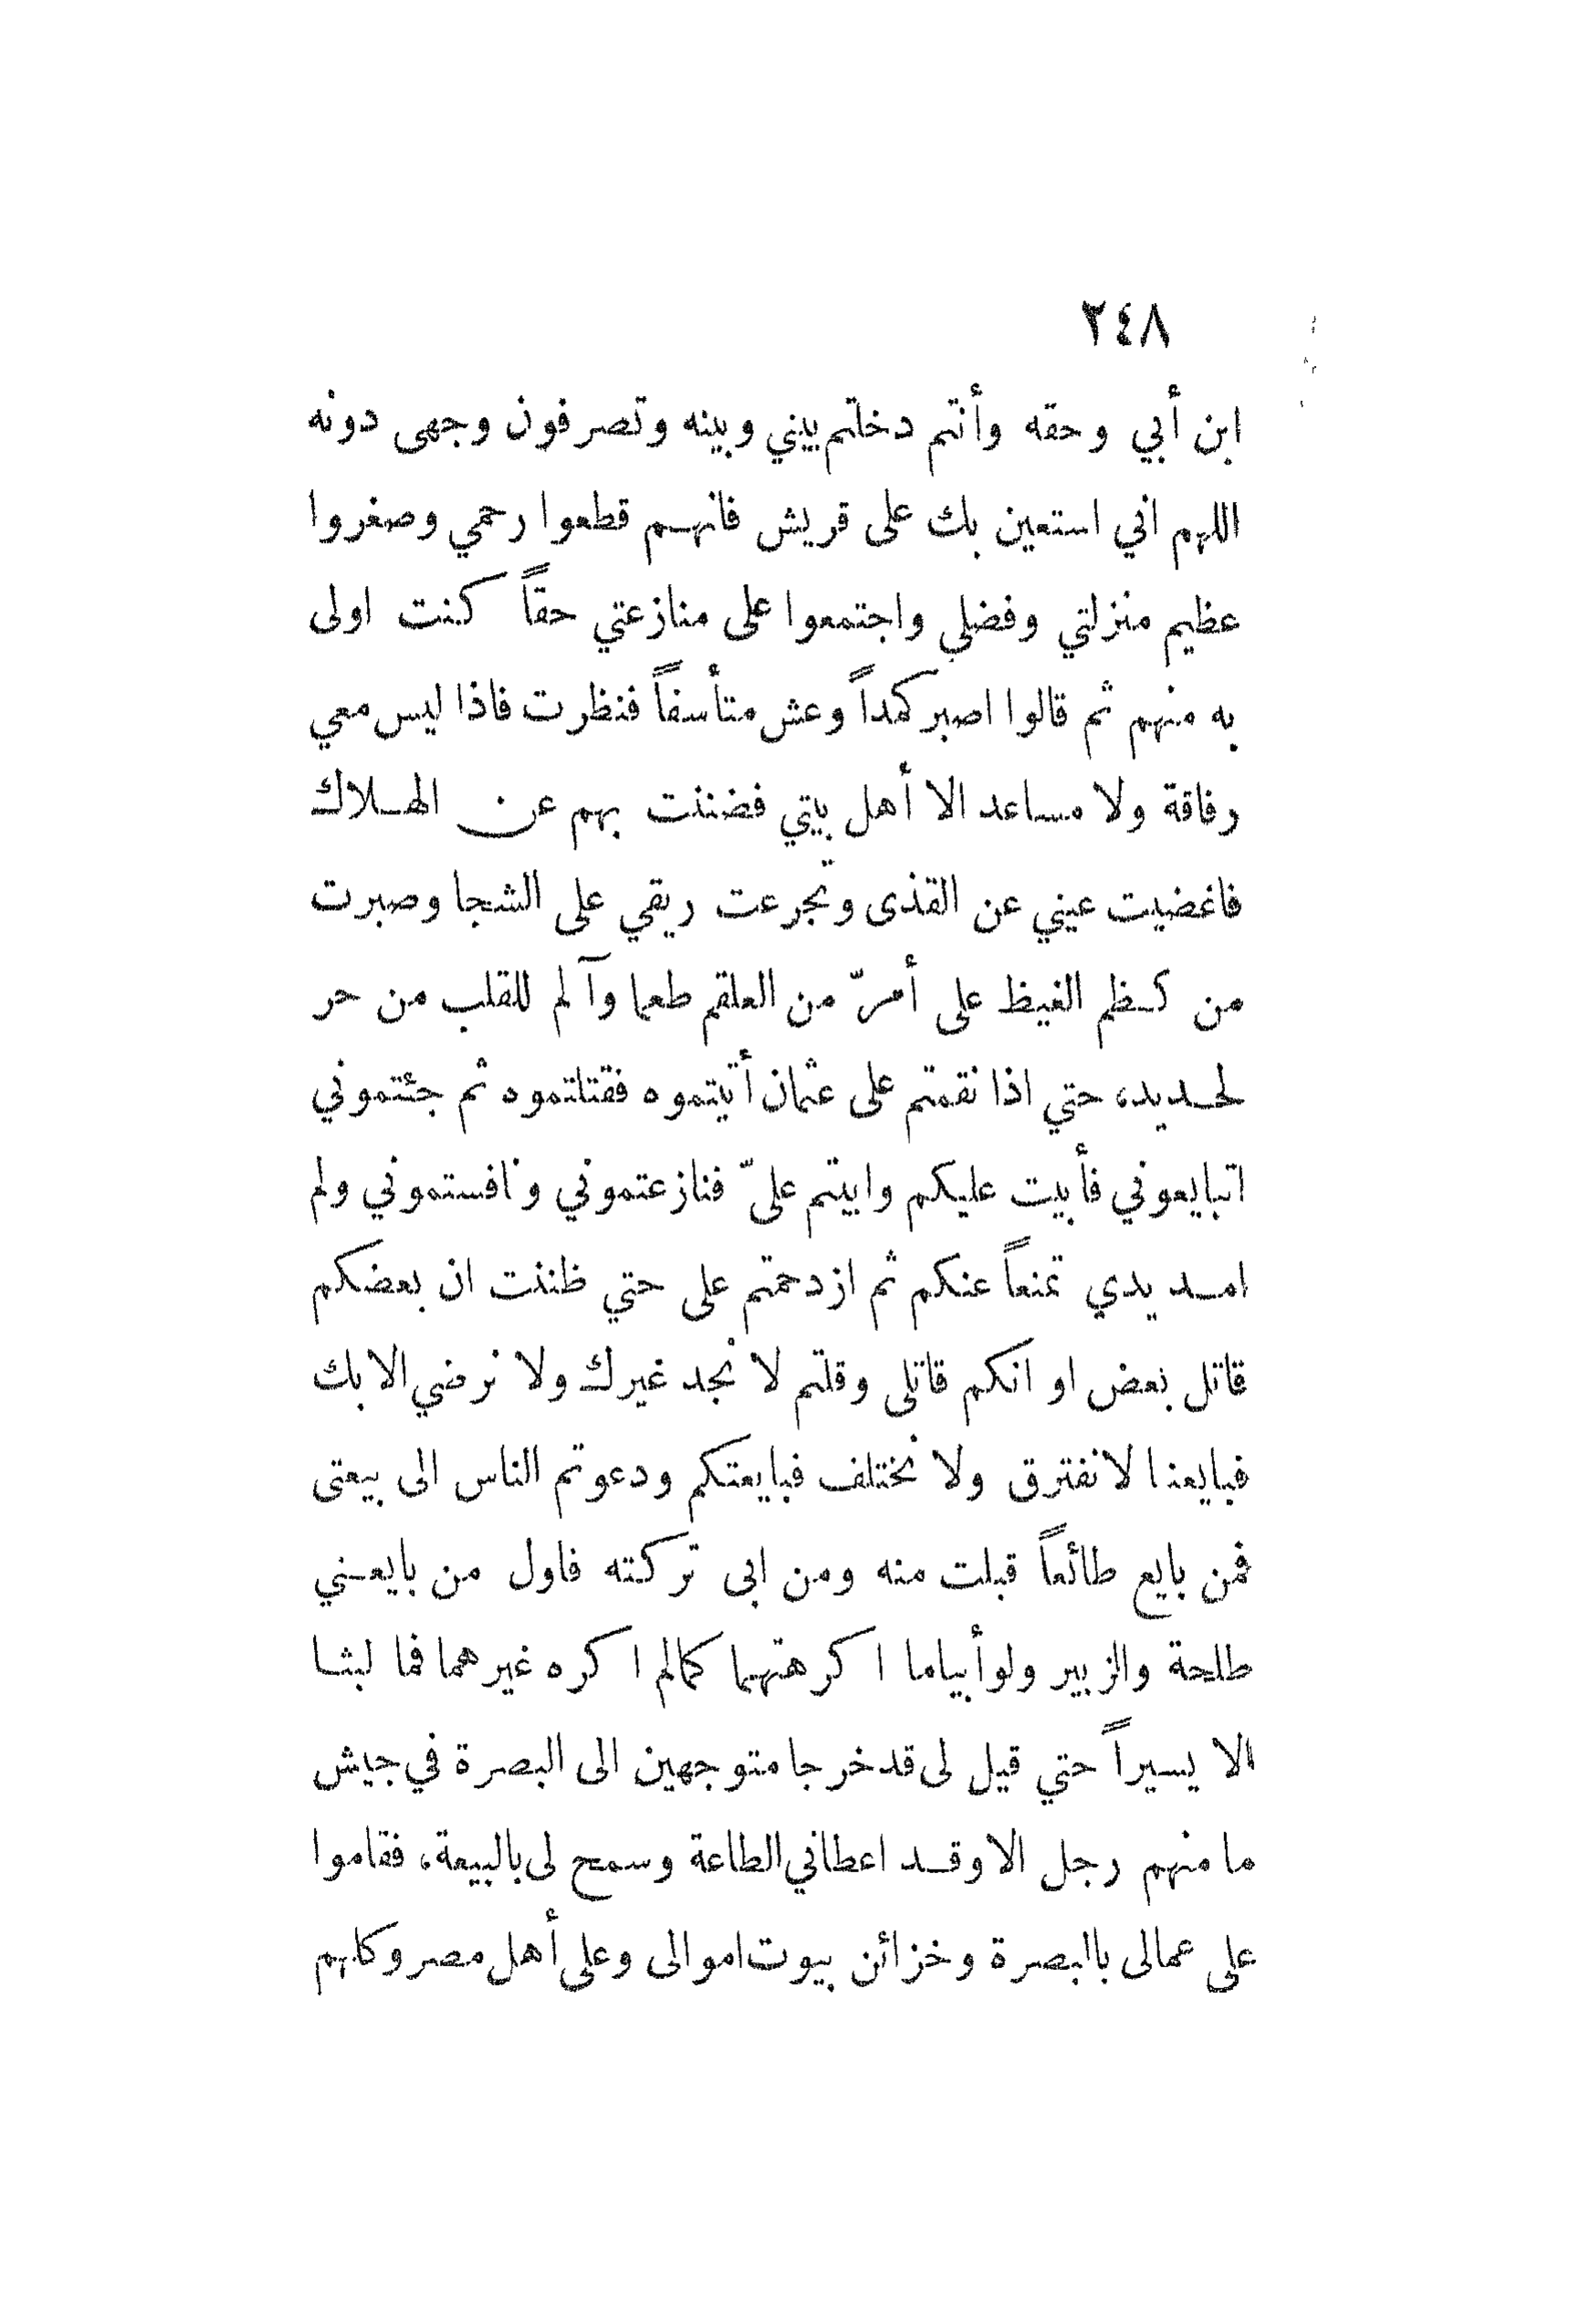 ٢٤٨
ابن أبي وحقه وأنتم دخلتم بيني وبينه وتصرفون وجهى دونه
اللهم اني استعين بك على قريش فانهم قطعوا رحمي وصغروا
عظيم منزلتي وفضلي واجتمعوا على منازعتي حقاً كنت اولى
به منهم ثم قالوا اصبر كمداً وعش متأسفاً فنظرت فاذا ليس معي
رفاقة ولا مساعد الا أهل بيتي فضننت بهم عن الهلاك
فاغضيت عيني عن القذى وتجرعت ريقي على الشجا وصبرت
من كظم الغيظ على أمرّ من العلقم طعما وآلم للقلب من حر
لحديد، حتي اذا نقمتم على عثمان أتيتموه فقتلتموه ثم جئتموني
اتبايعوني فأبيت عليكم وابيتم عليّ فنازعتموني ونافستموني ولم
امد يدي تمنعاً عنكم ثم ازدحمتم على حتي ظننت ان بعضكم
قاتل بعض او انكم قاتلى وقلتم لا نجد غيرك ولا نرضي الا بك
فبايعنا لا نفترق ولا نختلف فبايعتكم ودعوتم الناس الى بيعتى
فمن بايع طائعاً قبلت منه ومن ابى تركته فاول من بايعني
طلحة والزبير ولو أبياما اكرهتهما كمالم اكره غيرهما فما لبثا
الا يسيراً حتي قيل لى قد خرجا متوجهين الى البصرة في جيش
ما منهم رجل الا وقد اعطاني الطاعة وسمح لى بالبيعة، فقاموا
على عمالى باالبصرة وخزائن بيوت اموالى وعلى أهل مصر وكلهم